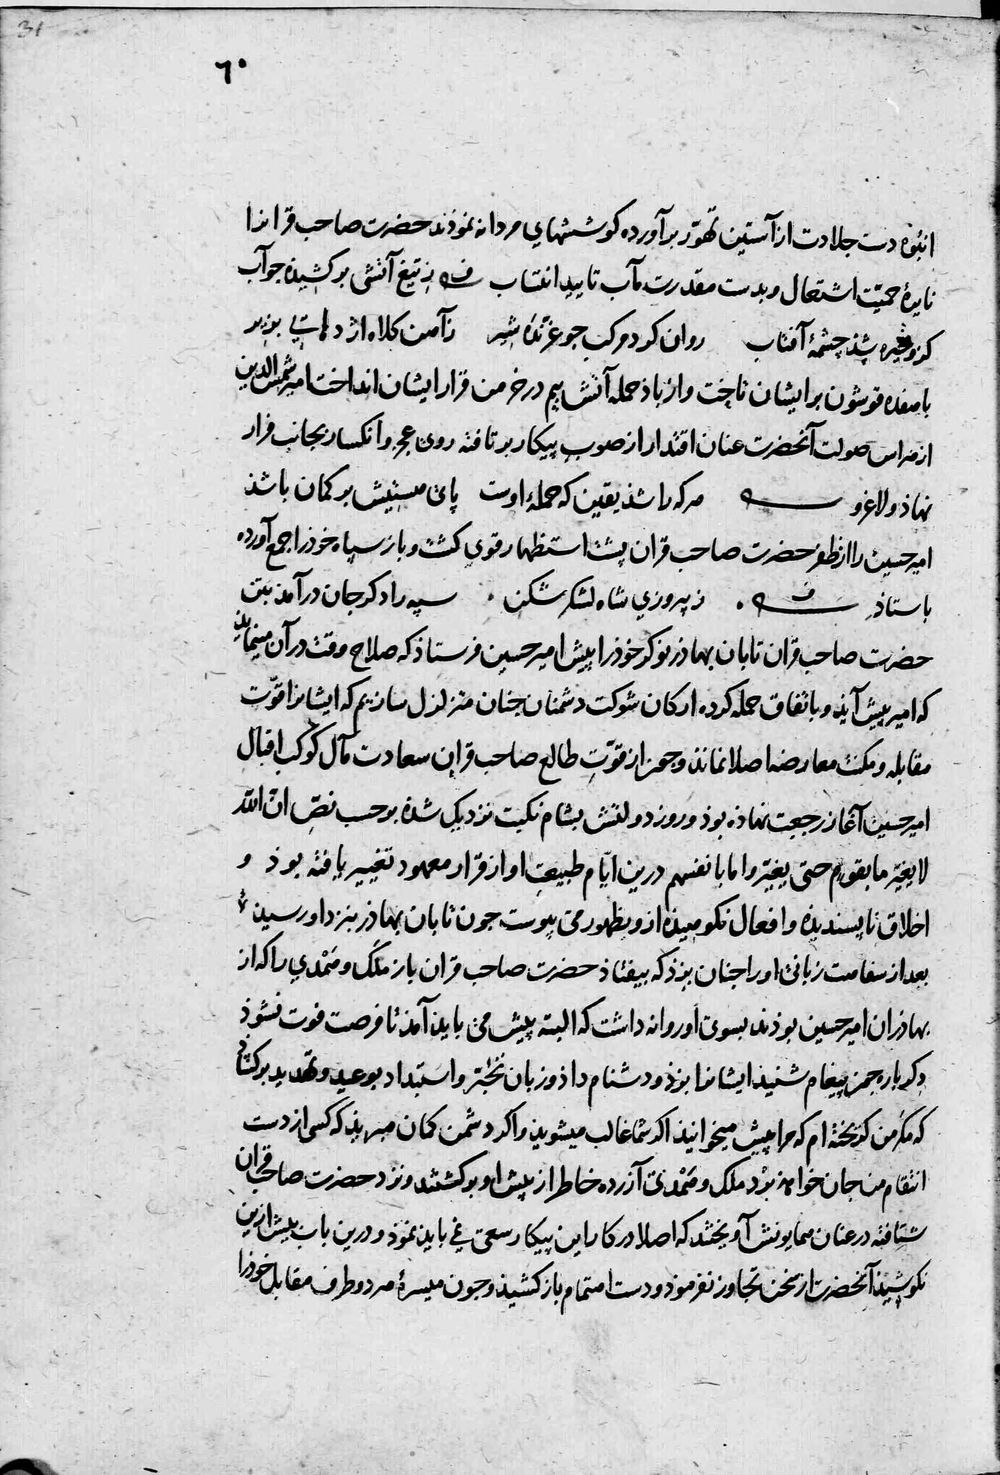 31
٦٠
انبوه دست جلادت از آستین تهوّر بر آورده کوششهای مردانه نمودند حضرت صاحب قرانرا
نایرهٔ حمیّت اشتعال و بدست مقدرت مآب تایید انتساب بزد تیغ آتشی برکشیده چو آب
کزو خیره شد چشمهٔ آفتاب روان کرد مرکب چو غرّنده شیر ز آهن کلاه اژدهائی بزیر
با هفده قوشون بر ایشان تاخت و از باد حمله آتش بیم در خرمن قرار ایشان انداخت امیر شمس الدین
از هراس صولت آنحضرت عنان اقتدار از صوب پیکار برتافته روی عجز و انکسار بجانب فرار
نهاذ ولاغرو هر که را شد یقین که حملهٔ اوست پای هستیش بر کمان باشد
امیر حسین را از ظفر حضرت صاحب قران پشت استظهار قوی گشت و باز سپاه خوذرا جمع آورده
باستاذ ز پیروزی شاه لشکر شکن سپه را دگر جان درآمد بتن
حضرت صاحب قران تابان بهاذر نوکر خوذرا پیش امیر حسین فرستاذ که صلاح وقت در آن مینماید
که امیر پیش آید و باتفاق حمله کرده ارکان شوکت دشمنان چنان متزلزل سازیم که ایشانرا قوّت
مقابله و مکنت معارضه اصلا نماند و چون از قوّت طالع صاحب قران سعادت مآل کوکب اقبال
امیر حسین آغاز رجعت نهاده بوذ و روز دولتش بشام نکبت نزدیک شده بر حسب نصّ ان الله
لا یغیّر ما بقوم حتی یغیّروا ما بانفسهم درین ایّام طبیعت او از قرار معهود تغییر یافته بوذ و
اخلاق ناپسندیده و افعال نکوهیده ازو بظهور می پیوست چون تابان بهاذر بنزد او رسید
بعد از سفاهت زبانی او را چنان بزد که بیفتاذ حضرت صاحب قران باز ملک و همدی را که از
بهاذران امیر حسین بوذند بسوی او روانه داشت که البته پیش می باید آمد تا فرصت فوت نشوذ
دگر باره چون پیغام شنید ایشانرا بزد و دشنام داذ و زبان تجبّر و استبداد بوعید و تهدید برگشاد
که مگر من گریخته ام که مرا پیش میخوانید اگر شما غالب میشوید و اگر دشمن گمان مبرید که کسی از دست
انتقام من جان خواهد برد ملک و همدی آزرده خاطر از پیش او برگشتند و نزد حضرت صاحب قران
شتافته در عنان همایونش آویختند که اصلا در کار این پیکار سعی نمی باید نموذ و درین باب بیش ازین
نکوشید آنحضرت از سخن تجاوز نفرموذ و دست اهتمام باز کشید و چون میسرهٔ هر دو طرف مقابل خوذرا